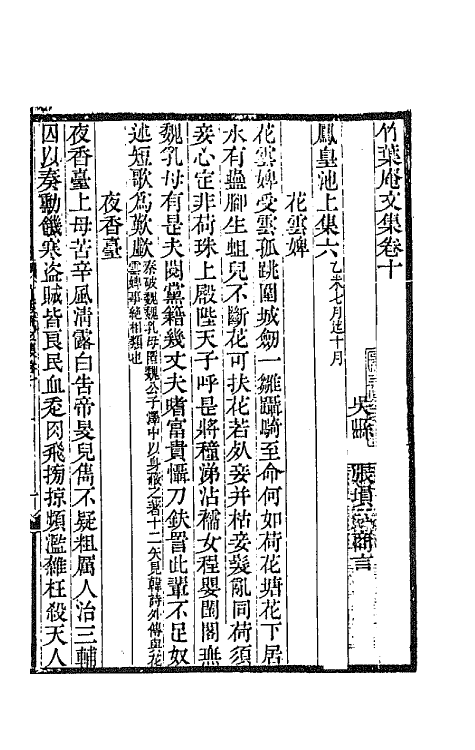 竹葉庵文集卷十
吳縣 張塤 商言
鳳皇池上集六乙未七月迄十月
花雲婢
花雲婢受雲孤跳圍城劒一雛躡騎至命何如荷花塘花下居
水有蟲腳生蛆兒不斷花可扶花若夗妾并枯妾髮亂同荷須
妾心定非荷珠上殿陛天子呼是將種涕沾襦女程嬰閨閤無
魏乳母有是夫閱黨籍幾丈夫嗜富貴懾刀鈇詈此輩不足奴
述短歌爲歎歔秦破魏魏乳母匿魏公子澤中以身蔽之著十二矢見韓詩外傳與花
雲婢事絶相類也
夜香臺
夜香臺上母苦辛風清露白告帝旻兒儁不疑粗厲人治三輔
囚以奏勳饑寒盗賊皆良民血㐬肉飛搒掠頻濫雜枉殺天人